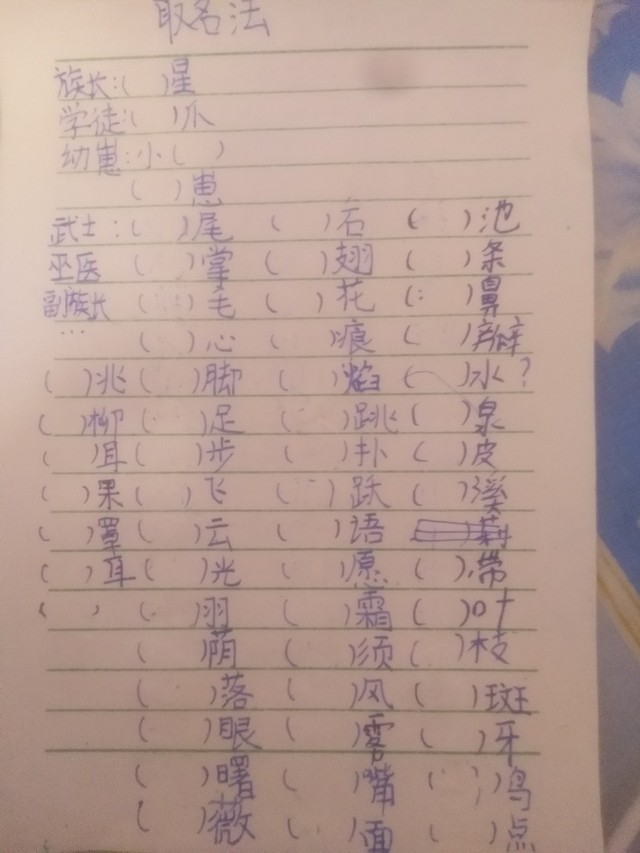 取名法
族长:( )星
学徒:( )爪
幼崽:小( )
( )崽
武士:( )尾 ( )石 ( )池
巫医 ( )掌 ( )翅 ( )条
副族长 ( )毛 ( )花 ( )鼻
… ( )心 ( 痕 ( )瓣
( )兆 ( )脚 ( )焰 ( )水?
( )柳 ( )足 ( )跳 ( )泉
( )耳 ( )步 ( )扑 ( )皮
( )果 ( )飞 ( )跃 ( )溪
( )罩 ( )云 ( )语
( )耳 ( )光 ( )愿 ( )带
( ) ( )羽 ( )霜 ( )叶
( )荫 ( )须 ( )枝
( )落 ( )风 ( )斑
( )眼 ( )雾 ( )牙
( )曙 ( )嘴 ( )鸟
( )薇 ( )面 ( )点